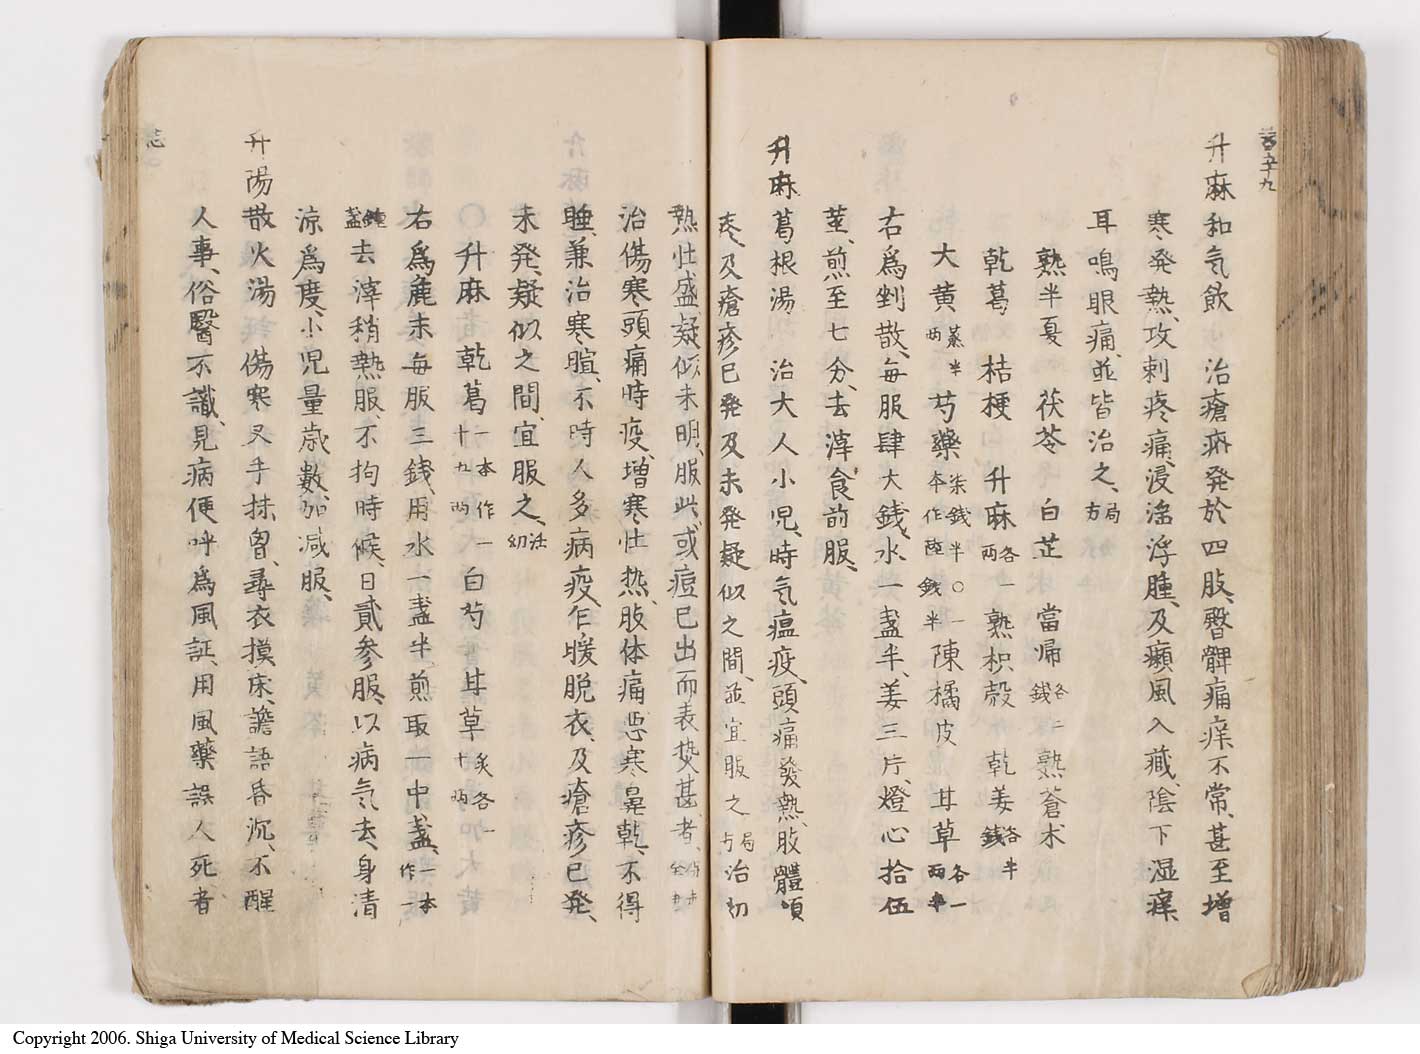 升麻和氣飲　治瘡疥発於四肢、臀髀痛痒不常、甚至增
寒発熱、攻刺疼痛、浸淫浮腫、及癩風入藏、陰下湿痒、
耳鳴眼痛、並皆治之、局方
熟半夏　茯苓　白芷　當帰各二錢 熟蒼朮
乾葛　桔梗　升麻各一两 熟枳殻　乾姜各半錢
大黄蒸半两 芍藥柒錢半○一本作陸錢半 陳橘皮　甘草各一两半
右為剉散、每服肆大錢、水一盞半、姜三片、燈心拾伍
莖、煎至七分、去滓、食前服、
升麻葛根湯　治大人小児、時氣瘟疫、頭痛發熱、肢體煩
疼、及瘡疹已発及未発疑似之間、並宜服之局方 治初
熱壮盛、疑似未明、服此、或痘已出而表熱甚者、
治傷寒頭痛時疫、増寒壮热、肢体痛、悪寒鼻乾、不得
睡、兼治寒暄、不時人多病疫、乍暖脱衣、及瘡疹已発、
未発、疑似之間、宜服之、活幼
升麻　乾葛一本作一十九两 白芍　甘草炙各一十两
右為麁末、每服三錢、用水一盞半、煎取一中盞、一本作一
鍾盞去滓稍熱服、不拘時候、日貳参服、以病気去、身清
涼為度、小児量歳數、加减服、
升陽散火湯　傷寒叉手抹胷、尋衣摸床、譫語昏沉、不醒
人事、俗醫不識、見病便呼為風証、用風藥誤人死者